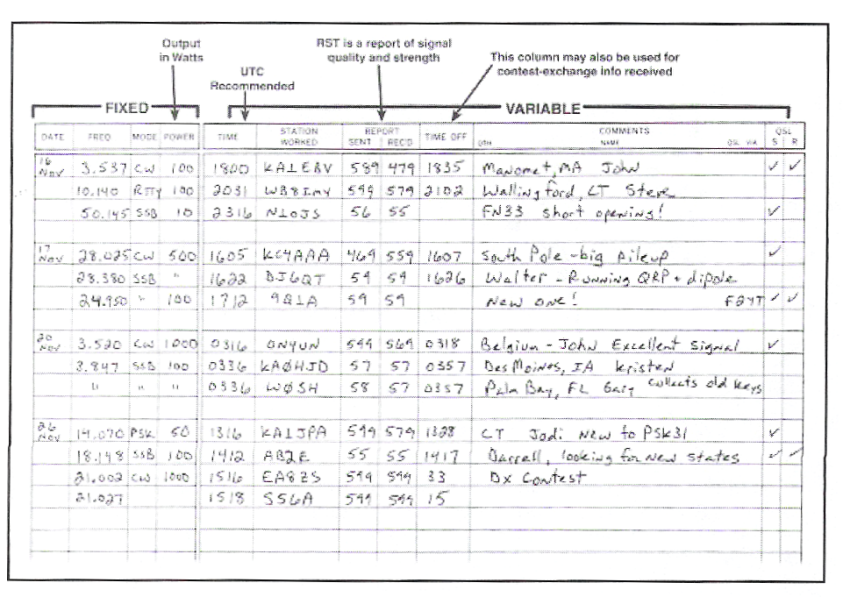 Output in Watts
UTC Recommended
RST is a report of signal quality and strength
This column may also be used for contest-exchange info received
FIXED VARIABLE
DATE FREQ MODE POWER TIME STATION WORKED REPORT SENT REC'D TIME OFF COMMENTS QTH NAME QSL VIA QSL S R
16 Nov 3.537 CW 100 1800 KA1EBV 589 479 1835 Manomet, MA John ✓ ✓
10.140 RTTY 100 2031 WB8IMY 599 579 2102 Wallingford, CT Steve
50.145 SSB 10 2316 N1OJS 56 55 FN33 short opening! ✓
17 Nov 28.025 CW 500 1605 KC4AAA 469 559 1607 South Pole - big pileup ✓
28.380 SSB " 1622 DJ6QT 59 59 1626 Walter - Running QRP + dipole
24.950 " 100 1712 9Q1A 59 59 New one! F2YT ✓ ✓
20 Nov 3.520 CW 1000 0316 ON4UN 599 569 0318 Belgium - John Excellent signal ✓
3.847 SSB 100 0336 KAØHJD 57 57 0357 Des Moines, IA kristen
" " " 0336 WØSH 58 57 0357 Palm Bay, FL Gary collects old keys
26 Nov 14.070 PSK 50 1316 KA1JPA 599 579 1328 CT Jodi New to PSK31 ✓
18.148 SSB 100 1412 AB2E 55 55 1417 Darrell, looking for new states ✓ ✓
21.002 CW 1000 1516 EA8ZS 599 599 33 Dx Contest
21.027 1518 S56A 599 599 15